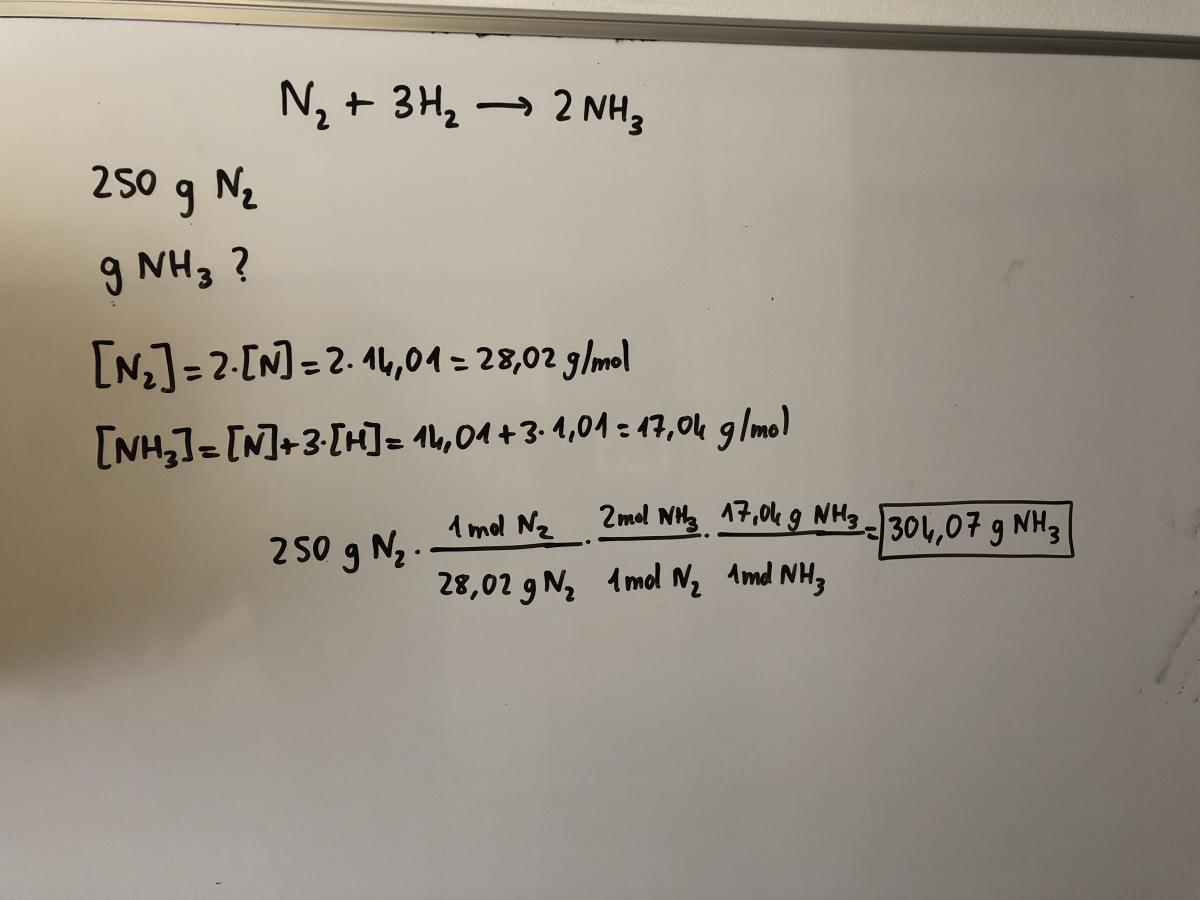 N₂ + 3H₂ → 2 NH₃
250 g N₂
g NH₃ ?
[N₂] = 2·[N] = 2·14,01 = 28,02 g/mol
[NH₃] = [N] + 3·[H] = 14,01 + 3·1,01 = 17,04 g/mol
250 g N₂ · (1 mol N₂ / 28,02 g N₂) · (2 mol NH₃ / 1 mol N₂) · (17,04 g NH₃ / 1 mol NH₃) = 304,07 g NH₃